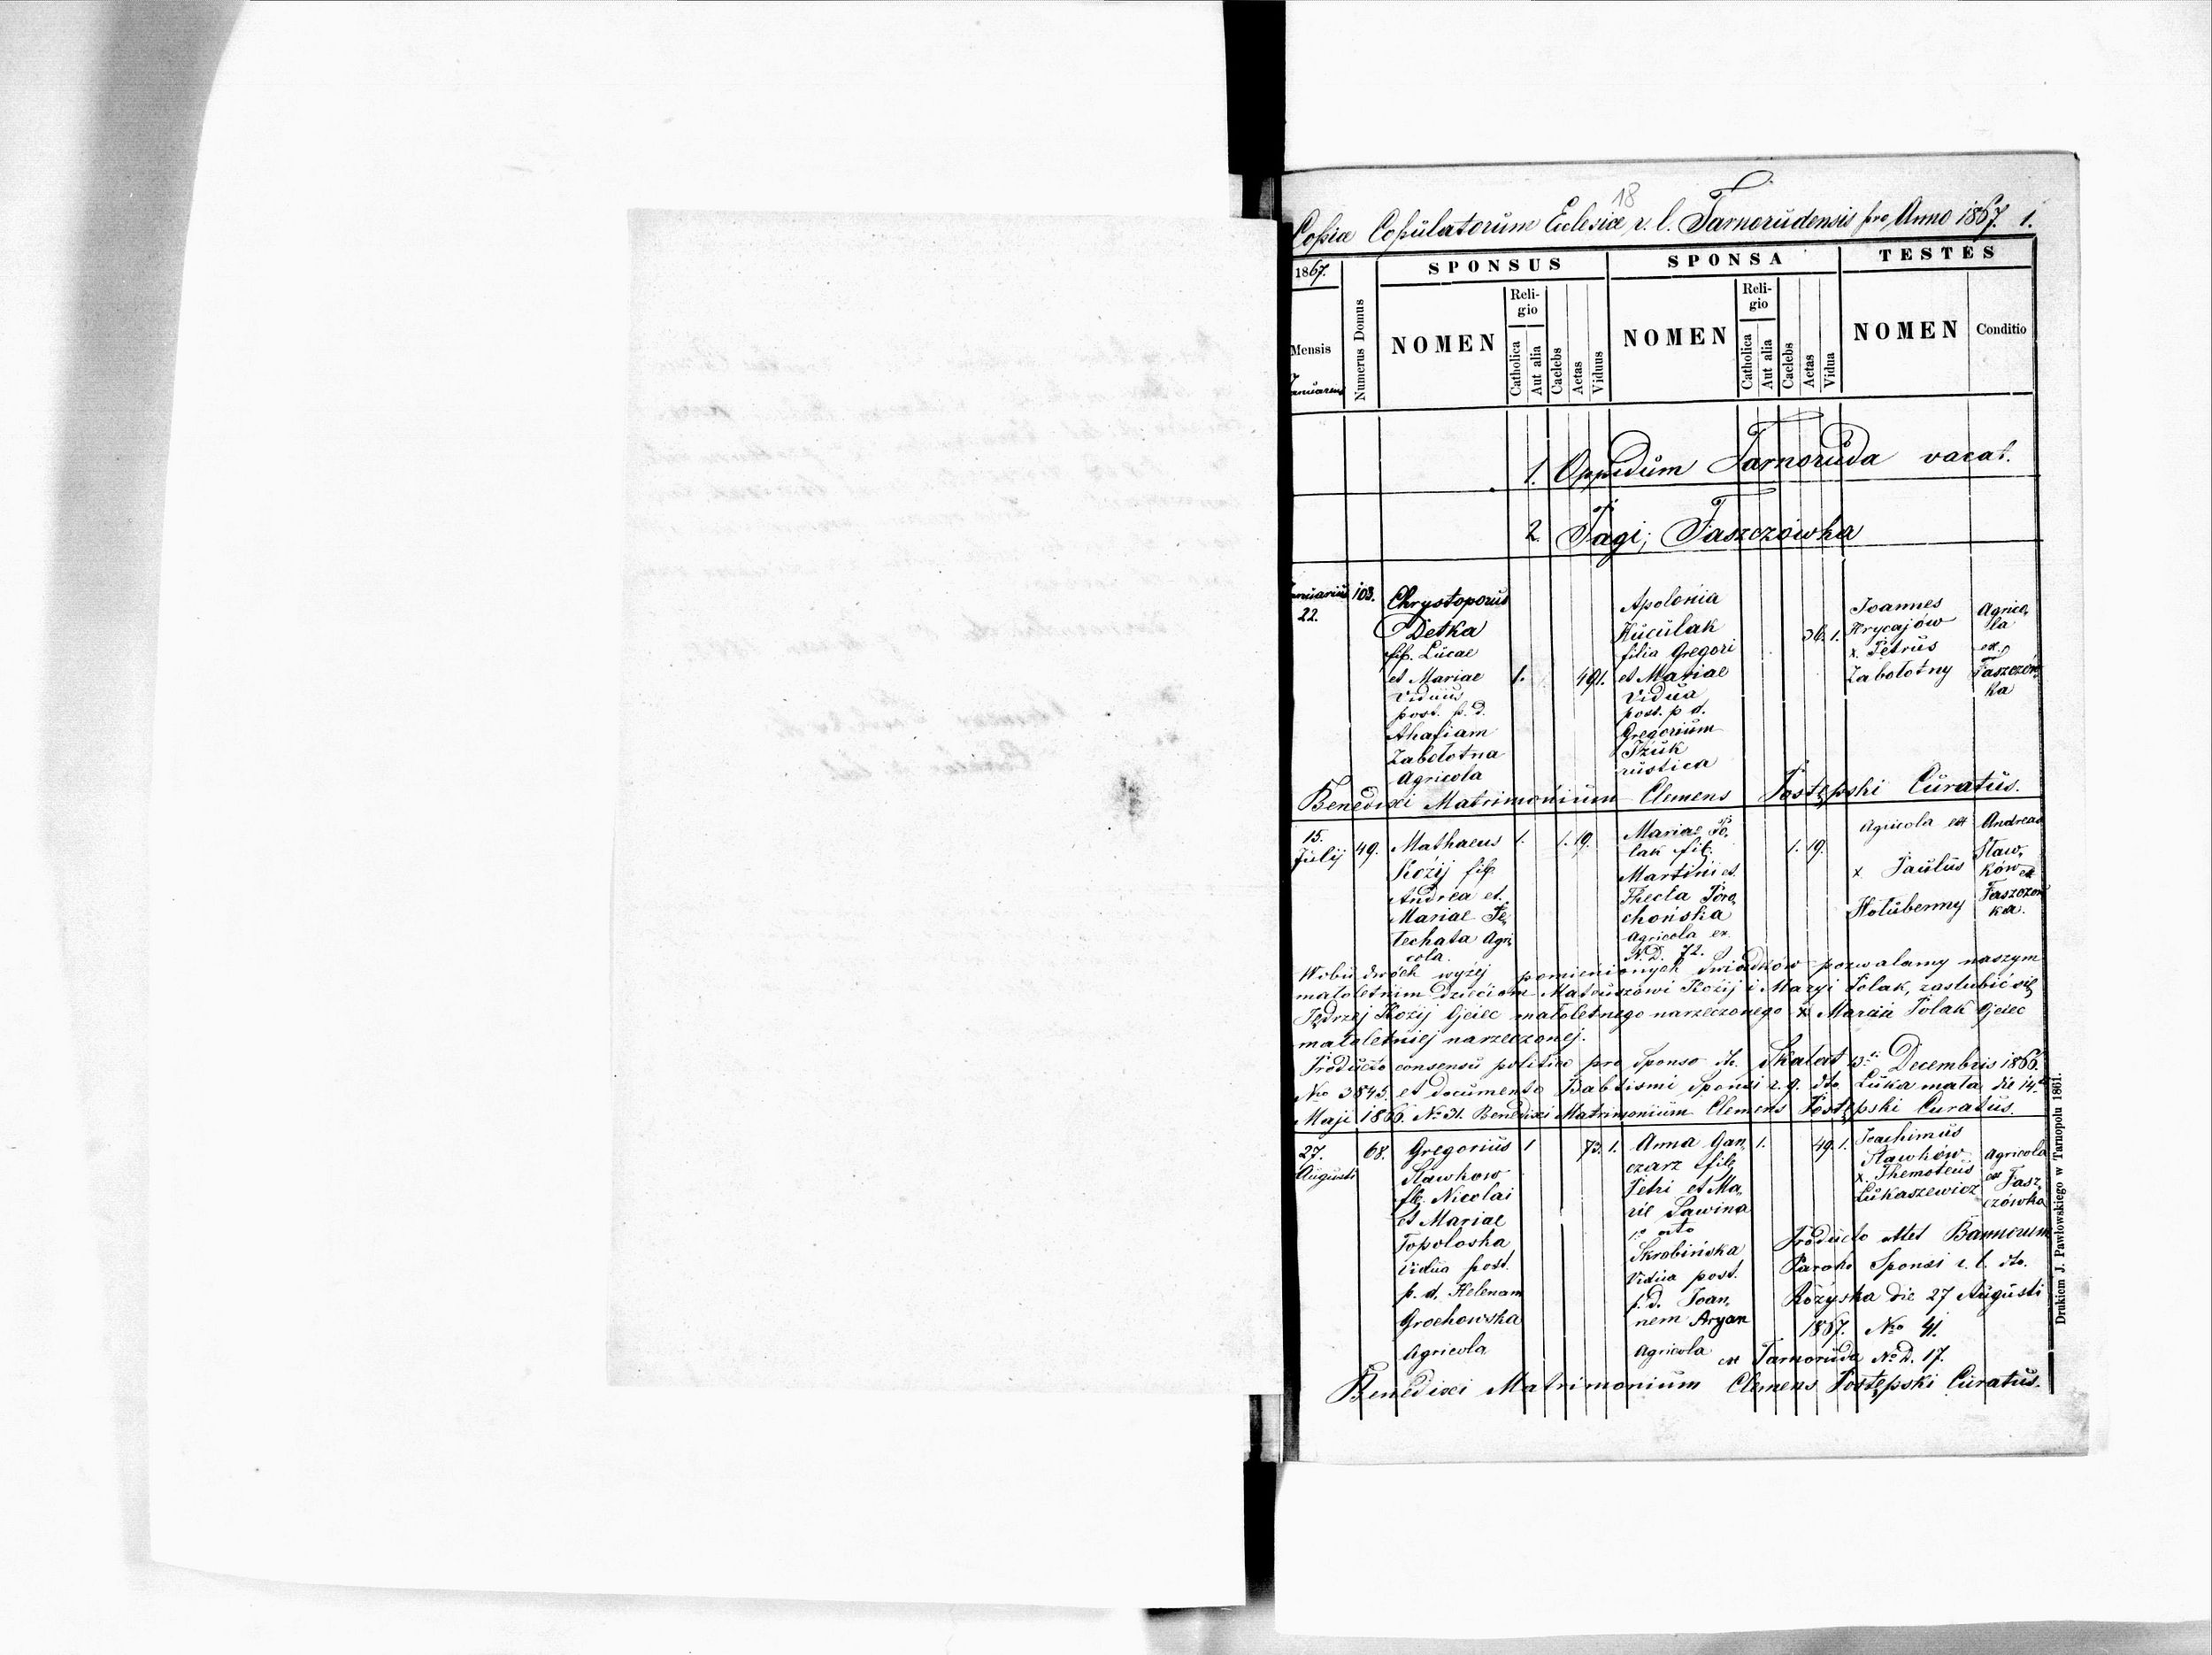 18
Copia Copülatorüm Eclesiæ r. l. Tarnorüdensis pro Anno 1867. 1.
1867.
Mensis
Januarius
Numerus Domus
SPONSUS
NOMEN
Reli-
gio
Catholica
Aut alia
Caelebs
Aetas
Viduus
SPONSA
NOMEN
Reli-
gio
Catholica
Aut alia
Caelebs
Aetas
Vidua
TESTES
NOMEN
Conditio
1. Oppidüm Tarnorüda vacat.
2. Pagi; Faszczówka
Januariüs
22.
103.
Chrystoporus
Detka
fil. Lücae
et Mariae
Vidüüs
post. p. d.
Ahafiam
Zabolotna
Agricola
1.
49 1.
Apolonia
Kücülak
filia Gregori
et Mariae
Vidüa
post. p d.
Gregoriüm
rüstica
36. 1.
Joannes
Hrycajów
x. Petrüs
Zabolotny
Agrico,
la
ex.
Faszczów,
ka
Benedixi Matrimoniüm Clemens Postępski Cüratüs.
15.
Jülij
49.
Mathaeus
Kozij fil.
Andrea et.
Mariae Te,
techata Agri,
cola.
1.
1. 19.
Mariae Po,
lak fil.
Martini et
Thecla Poro,
chońska
Agricola ex.
N.D. 72.
1. 19.
Agricola ex
x Paülüs
Holübenny
Andreas
Sław,
ków ex
Faszczów
ka.
W obü dwóch wyżej pomienionych Świadków pozwalamy naszym
małoletnim Dzieciom Mateüszowi Kozij i Maryi Polak, zaslubić się
Jędrzej Kozij Ojciec małoletnego narzeczonego x Marcin Polak Ojciec
małoletniej narzeczonej.
Prodücto consensü politico pro Sponso dto. Skałat 13. Decembris 1866.
Nro 3843. et documento Babtismi Sponsi r. g. dto. Lüka mała die 14.
Maji 1866. No 31. Benedixi Matrimoniüm Clemens Postępski Curatüs.
27.
Aügusti
68.
Gregoriüs
Sławkow
fil. Nicolai
et Mariae
Topoloska
Vidüa post.
p. d. Helenam
Grochowska
Agricola
1
73. 1.
Anna Gan,
czarz fil.
Petri et Ma,
rie Sawina
Skrobińska
Vidüa post.
p. d. Joan,
nem Aryan
Agricola
ex Tarnorüda No D. 17.
1.
49. 1.
Joachimüs
Sławków
x. Themoteüs
Lükaszewicz
Agricola
ex Fasz,
czówka
Prodücto Atet Bannorum
Paroho Sponsi r. l. dto.
Rożyska die 27 Aügüsti
1867. Nro 41.
Benedixi Matrimoniüm Clemens Postępski Cüratüs.
Drukiem J. Pawłowskiego w Tarnopolu 1861.